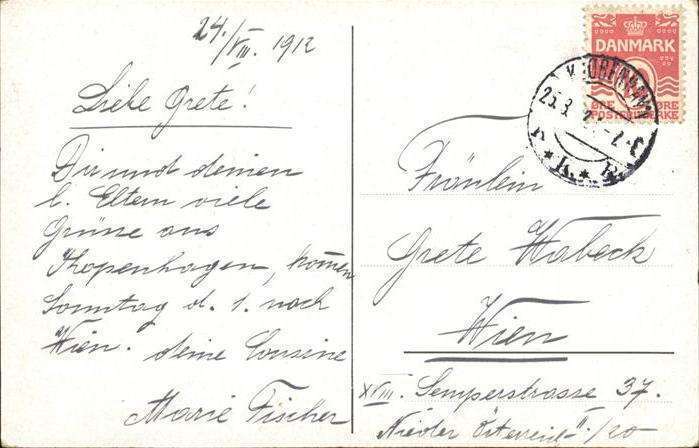 24./VIII. 1912
Liebe Grete!
Dir und deinen
l. Eltern viele
Grüsse aus
Kopenhagen, kommen
Sonntag d. 1. nach
Wien. deine Cousine
Marie Fischer
DANMARK
ØRE ØRE
POSTFRIMÆRKE
KJØBENHAVN
25.8.
K. K.
Fräulein
Grete Wabeck
Wien
XVIII. Semperstrasse 37.
Nieder Österreich II/20